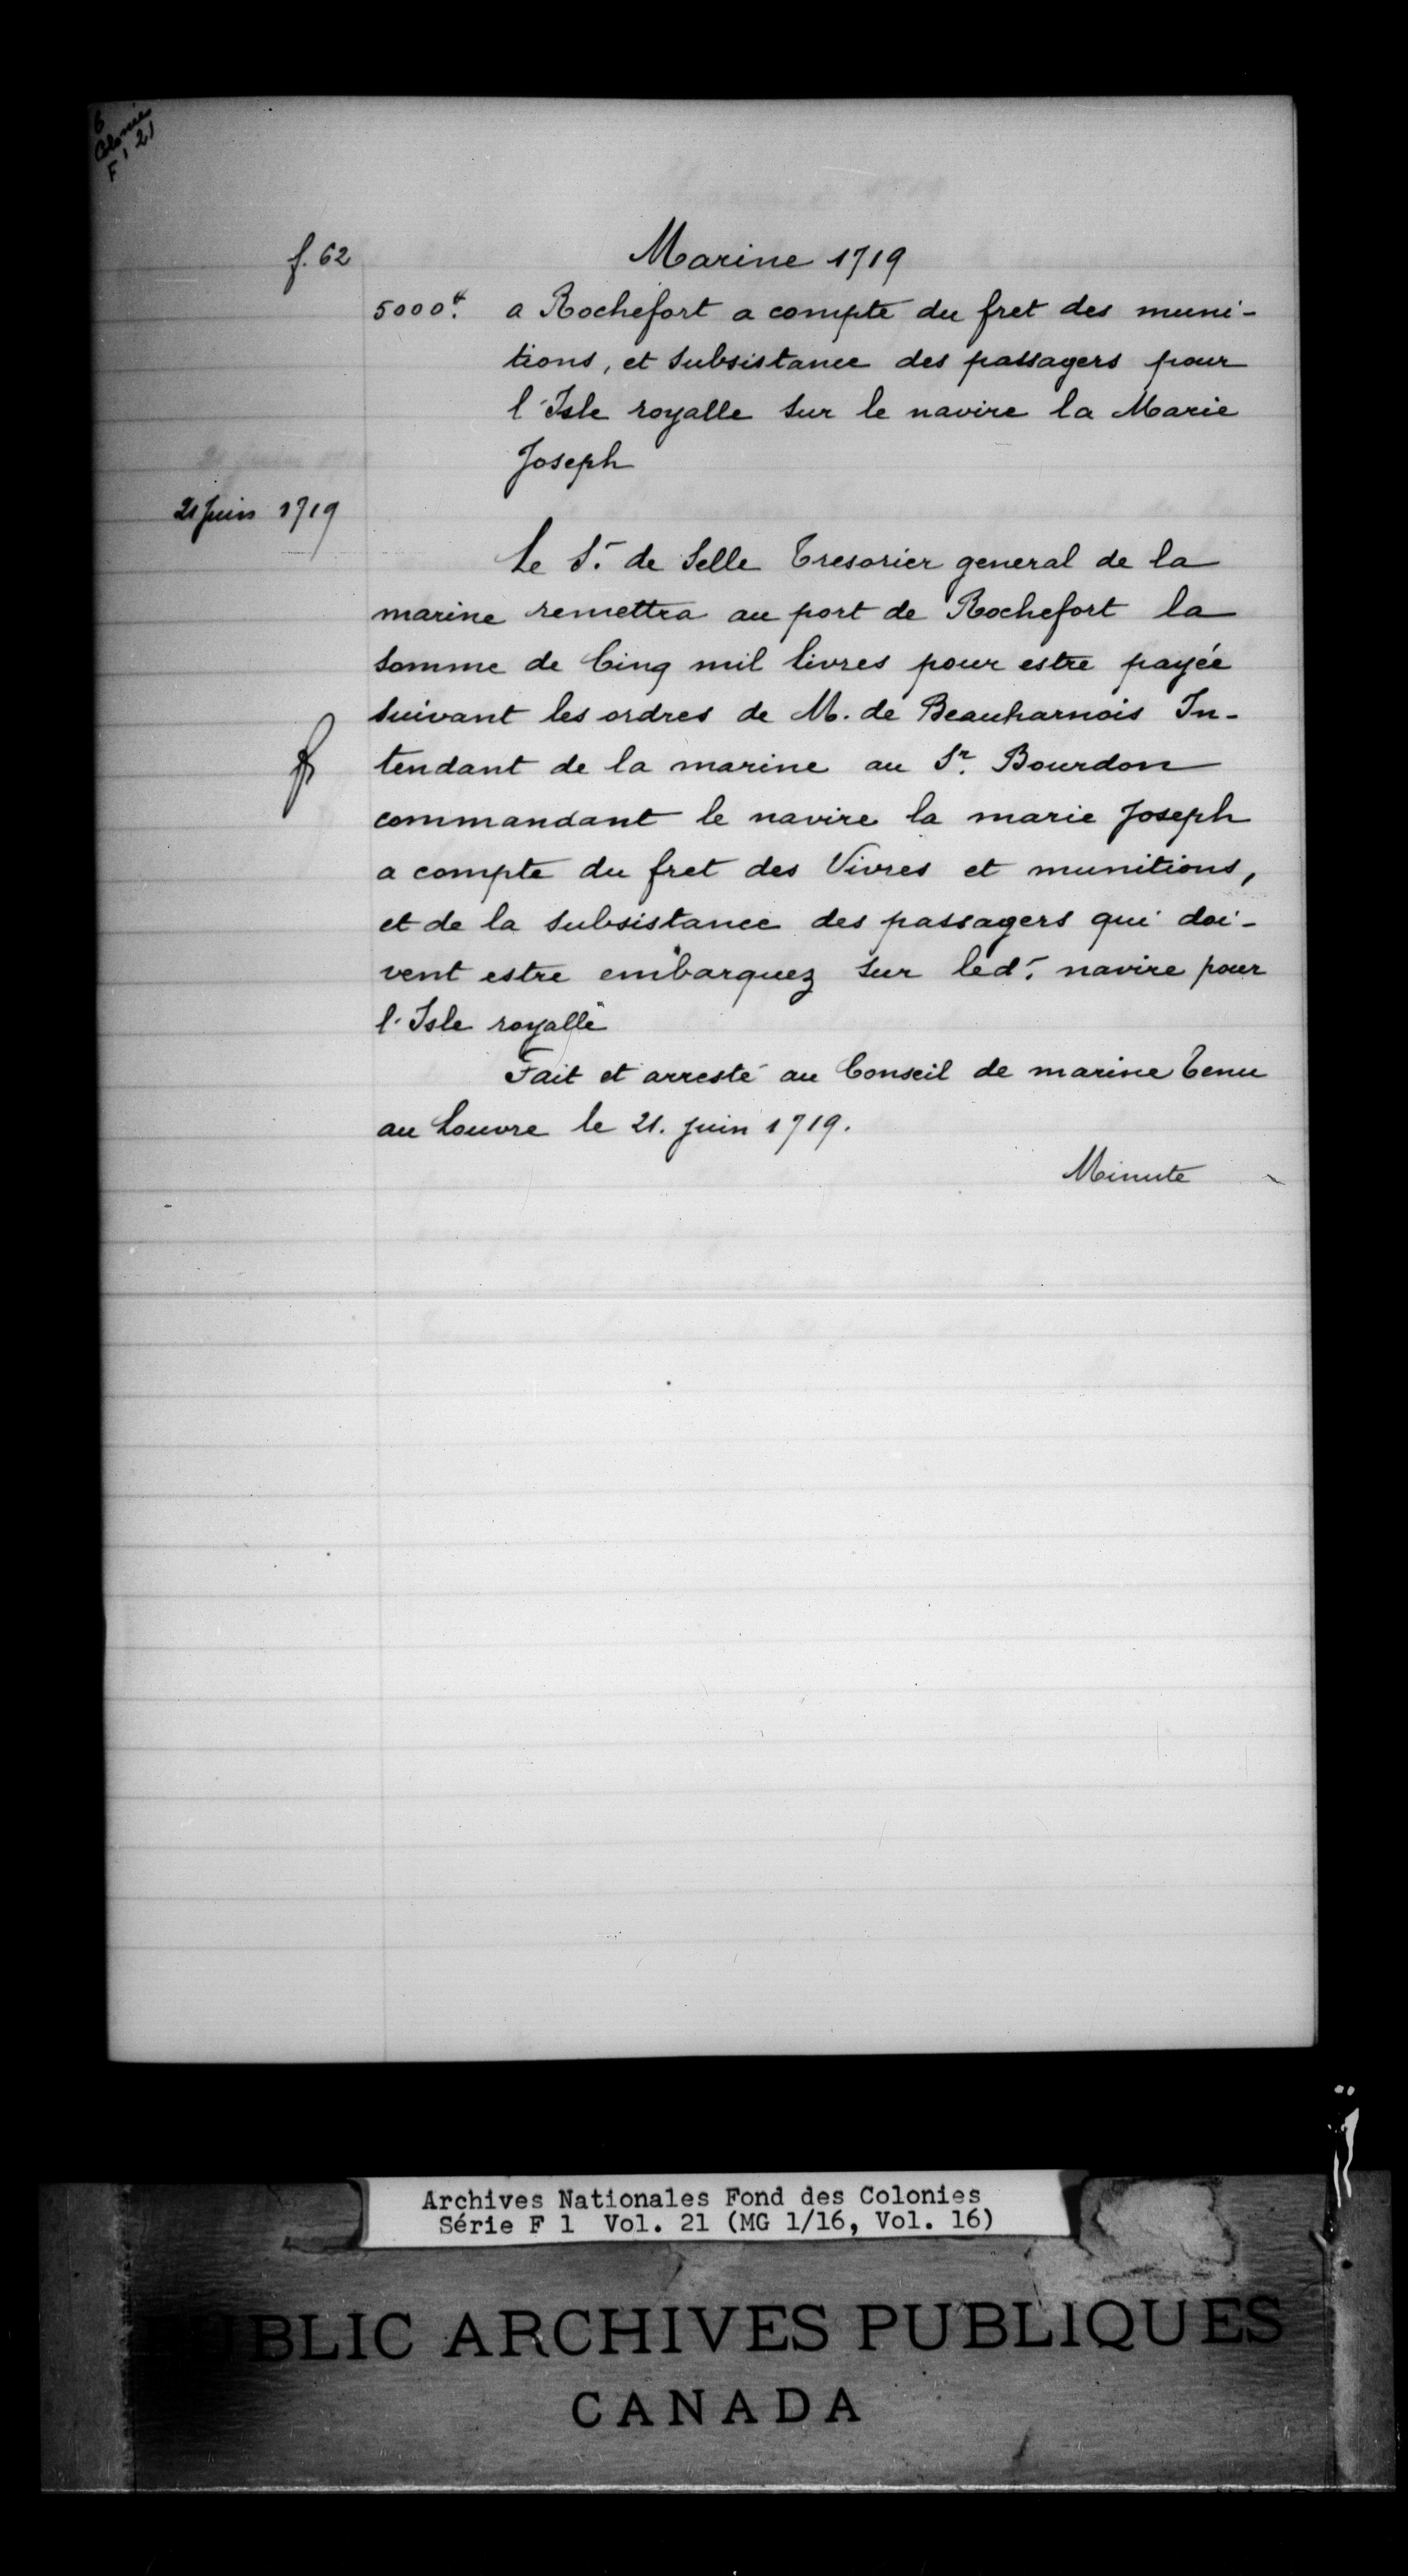 6
Colonies
F 1 21
f. 62
Marine 1719
5000ᵗ. a Rochefort a compte du fret des muni-
tions, et subsistance des passagers pour
l'Isle royalle sur le navire la Marie
Joseph
21 Juin 1719
Le Sr. de Selle Tresorier general de la
marine remettra au port de Rochefort la
somme de Cinq mil livres pour estre payée
suivant les ordres de M. de Beauharnois In-
tendant de la marine au Sr. Bourdon
commandant le navire la marie Joseph
a compte du fret des Vivres et munitions,
et de la subsistance des passagers qui doi-
vent estre embarquez sur led. navire pour
l'Isle royalle
Fait et arresté au Conseil de marine Tenu
au Louvre le 21. juin 1719.
Minute
Archives Nationales Fond des Colonies
Série F 1 Vol. 21 (MG 1/16, Vol. 16)
PUBLIC ARCHIVES PUBLIQUES
CANADA